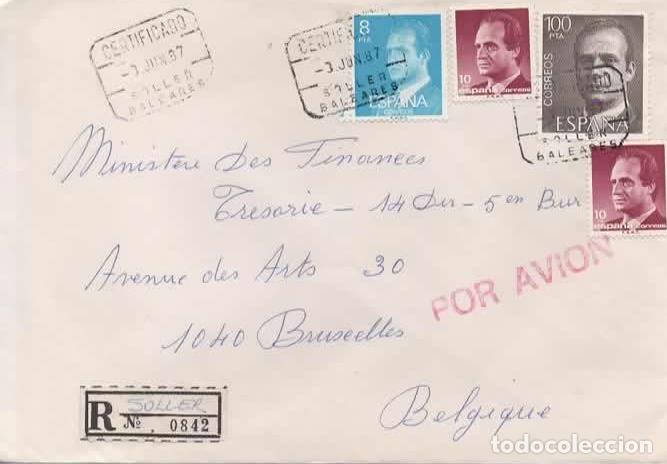 CERTIFICADO
-3 JUN. 87
SOLLER
BALEARES
CERTIFICADO
-3 JUN. 87
SOLLER
BALEARES
8
PTA
ESPAÑA
correos
10
españa correos
100
PTA
CORREOS
ESPAÑA
SOLLER
BALEARES
10
españa correos
Ministère Des Finances
Tresorie - 14 Dir - 5 en Bur
POR AVION
Avenue des Arts 30
1040 Bruxelles
Belgique
R SOLLER
No. 0842
todocoleccion